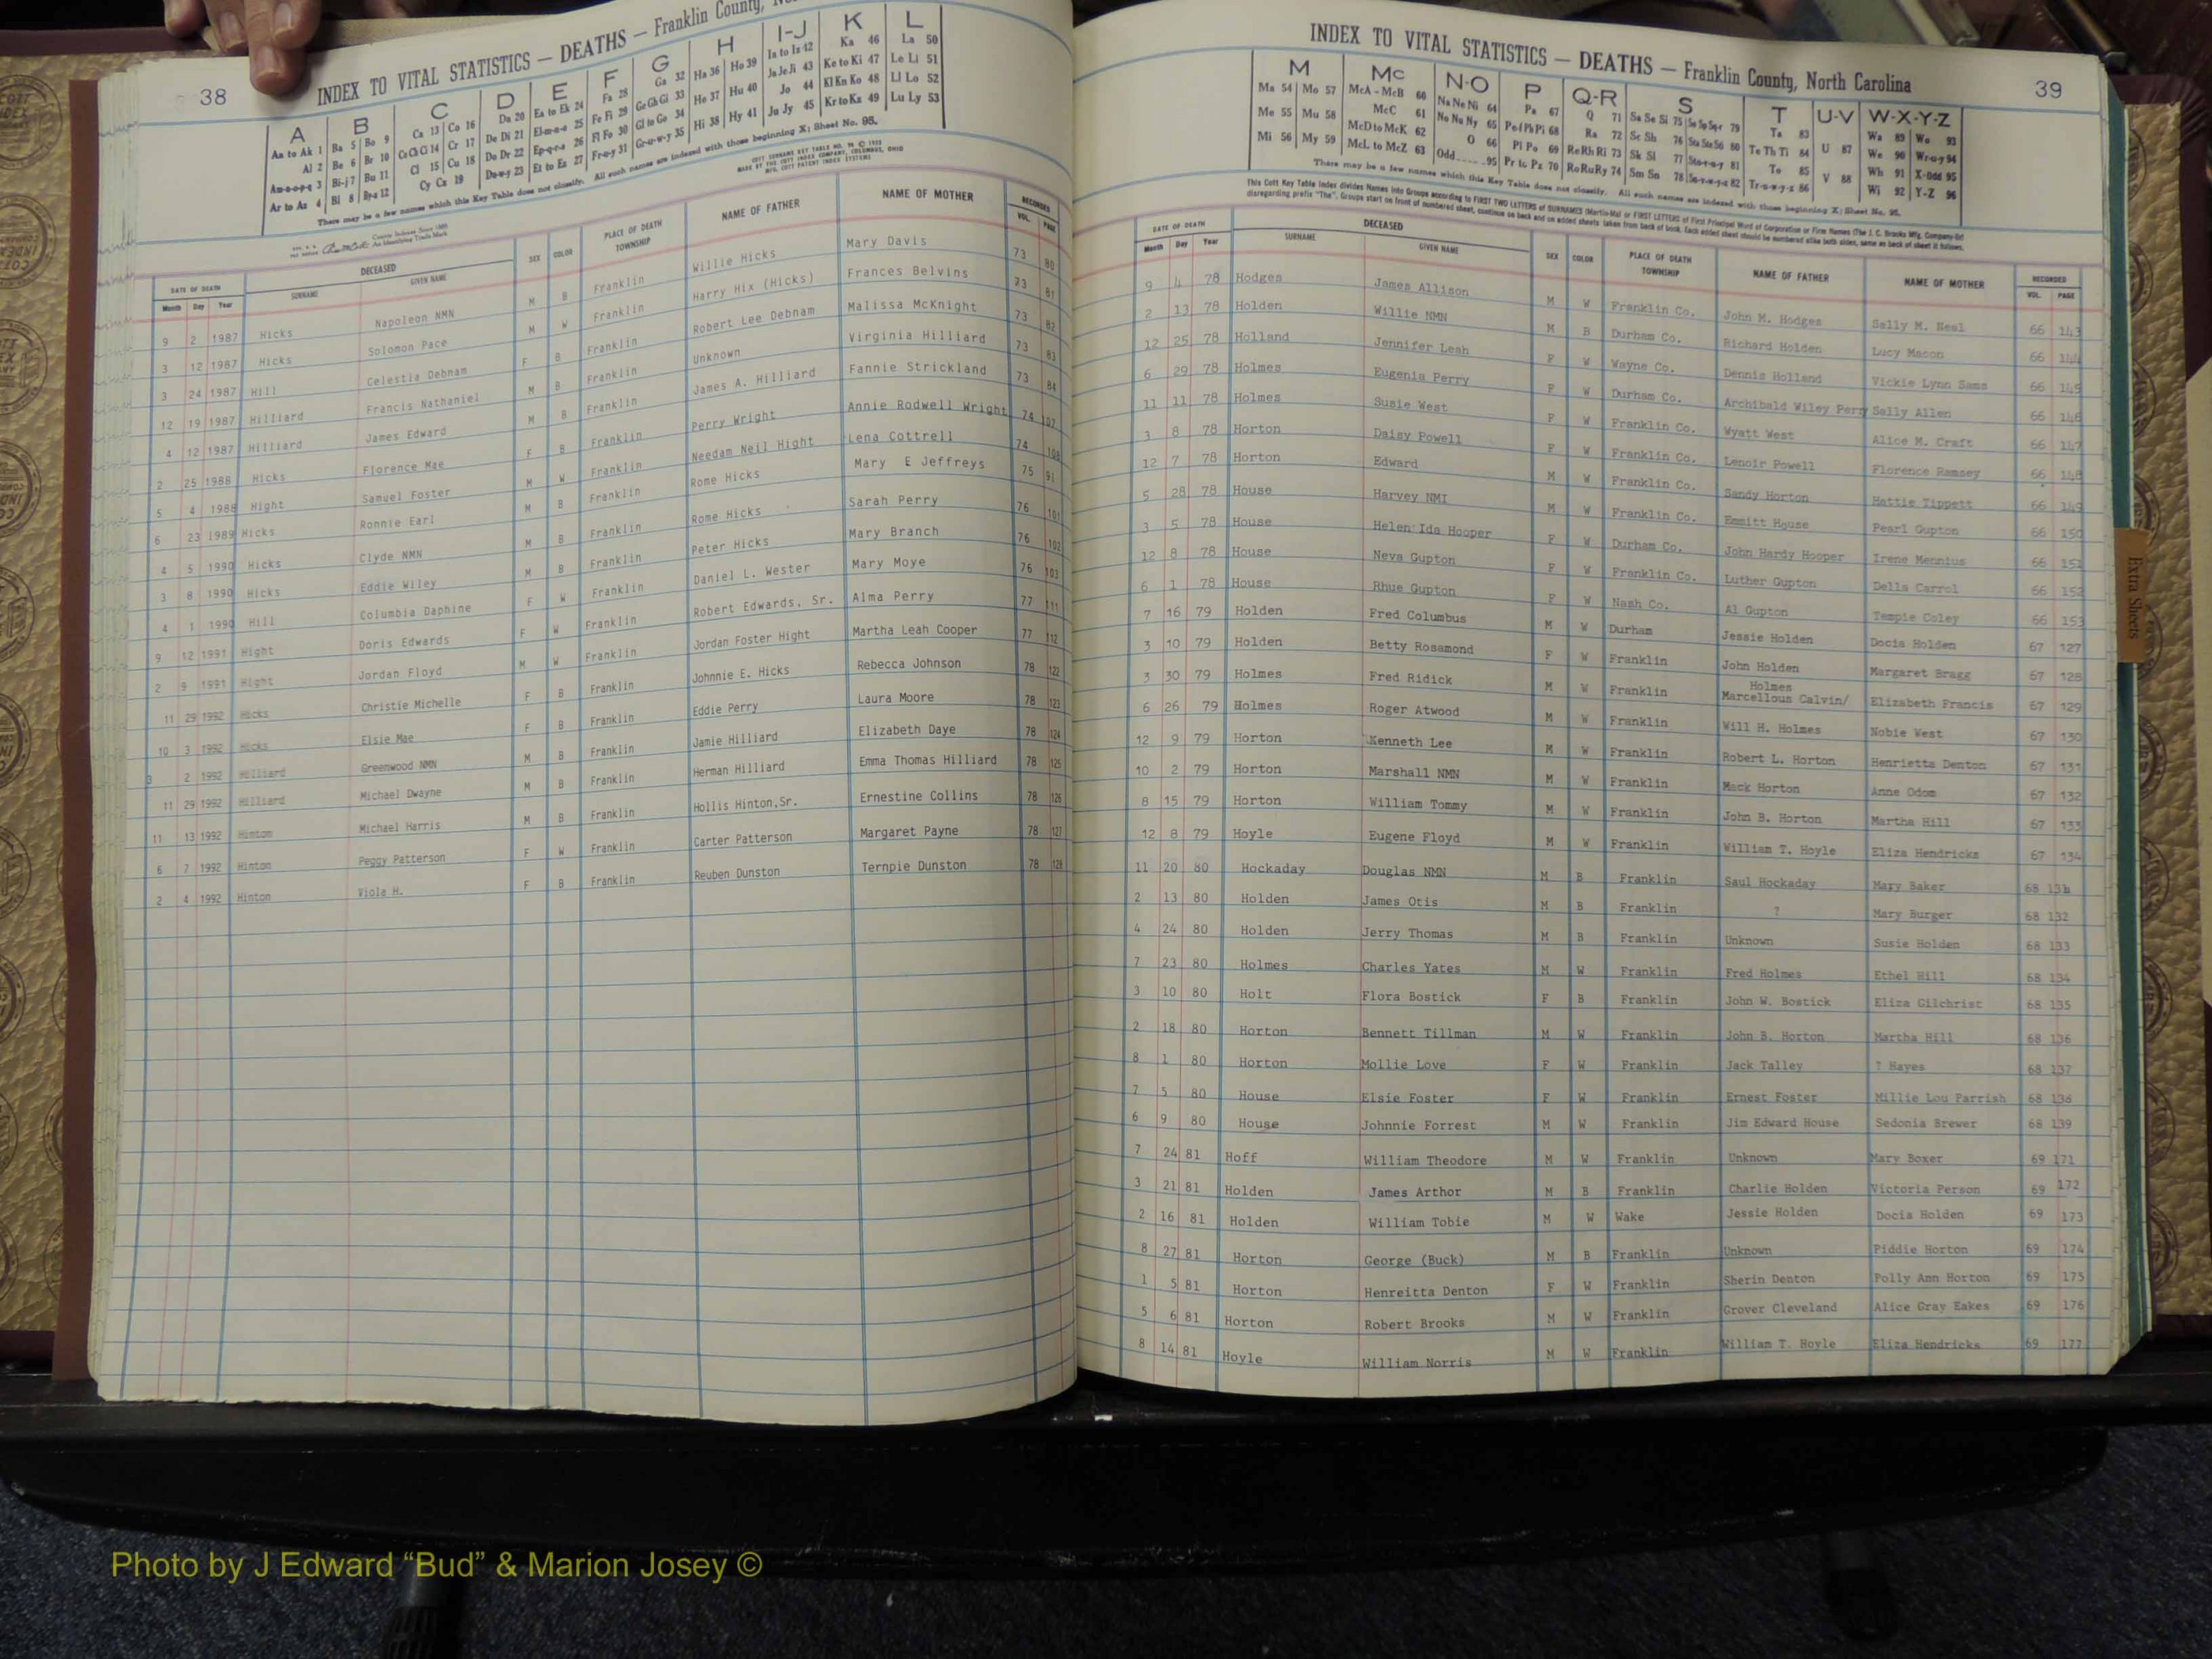 38
INDEX TO VITAL STATISTICS — DEATHS — Franklin County,
A B C D E F G H I-J K L
Aa to Ak 1 Ba 5 Bo 9 Ca 13 Co 16 Da 20 Ea to Ek 24 Fa 28 Ga 32 Ha 36 Ho 39 Ia to Iz 42 Ka 46 La 50
Al 2 Be 6 Br 10 Ce Ch Ci 14 Cr 17 De Di 21 El-m-n-o 25 Fe Fi 29 Ge Gh Gi 33 He 37 Hu 40 Ja Je Ji 43 Ke to Ki 47 Le Li 51
Am-n-o-p-q 3 Bi-j 7 Bu 11 Cl 15 Cu 18 Do Dr 22 Ep-q-r-s 26 Fl Fo 30 Gl to Go 34 Hi 38 Hy 41 Jo 44 Kl Kn Ko 48 Ll Lo 52
Ar to Az 4 Bl 8 By-z 12 Cy Cz 19 Du-w-y 23 Et to Ez 27 Fr-u-y 31 Gr-u-w-y 35 Ju Jy 45 Kr to Kz 49 Lu Ly 53
There may be a few names which this Key Table does not classify. All such names are indexed with those beginning X; Sheet No. 95.
DATE OF DEATH DECEASED SEX COLOR PLACE OF DEATH TOWNSHIP NAME OF FATHER NAME OF MOTHER RECORDED
Month Day Year SURNAME GIVEN NAME VOL. PAGE
9 2 1987 Hicks Napoleon NMN M B Franklin Willie Hicks Mary Davis 73 80
3 12 1987 Hicks Solomon Pace M W Franklin Harry Hix (Hicks) Frances Belvins 73 81
3 24 1987 Hill Celestia Debnam F B Franklin Robert Lee Debnam Malissa McKnight 73 82
12 19 1987 Hilliard Francis Nathaniel M B Franklin Unknown Virginia Hilliard 73 83
4 12 1987 Hilliard James Edward M B Franklin James A. Hilliard Fannie Strickland 73 84
2 25 1988 Hicks Florence Mae F B Franklin Perry Wright Annie Rodwell Wright 74 107
5 4 1988 Hight Samuel Foster M W Franklin Needam Neil Hight Lena Cottrell 74 108
6 23 1989 Hicks Ronnie Earl M B Franklin Rome Hicks Mary E Jeffreys 75 91
4 5 1990 Hicks Clyde NMN M B Franklin Rome Hicks Sarah Perry 76 101
3 8 1990 Hicks Eddie Wiley M B Franklin Peter Hicks Mary Branch 76 102
4 1 1990 Hill Columbia Daphine F W Franklin Daniel L. Wester Mary Moye 76 103
9 12 1991 Hight Doris Edwards F W Franklin Robert Edwards, Sr. Alma Perry 77 111
2 9 1991 Hight Jordan Floyd M W Franklin Jordan Foster Hight Martha Leah Cooper 77 112
11 29 1992 Hicks Christie Michelle F B Franklin Johnnie E. Hicks Rebecca Johnson 78 122
10 3 1992 Hicks Elsie Mae F B Franklin Eddie Perry Laura Moore 78 123
3 2 1992 Hilliard Greenwood NMN M B Franklin Jamie Hilliard Elizabeth Daye 78 124
11 29 1992 Hilliard Michael Dwayne M B Franklin Herman Hilliard Emma Thomas Hilliard 78 125
11 13 1992 Hinton Michael Harris M B Franklin Hollis Hinton,Sr. Ernestine Collins 78 126
6 7 1992 Hinton Peggy Patterson F W Franklin Carter Patterson Margaret Payne 78 127
2 4 1992 Hinton Viola H. F B Franklin Reuben Dunston Ternpie Dunston 78 128
39
INDEX TO VITAL STATISTICS — DEATHS — Franklin County, North Carolina
M Mc N-O P Q-R S T U-V W-X-Y-Z
Ma 54 Mo 57 McA - McB 60 Na Ne Ni 64 Pa 67 Q 71 Sa Se Si 75 So Sp Sq-r 79 Ta 83 Wa 89 Wo 93
Me 55 Mu 58 McC 61 No Nu Ny 65 Pe Pf Ph Pi 68 Ra 72 Sc Sh 76 Sta Ste 80 Te Th Ti 84 U 87 We 90 Wr-u-y 94
Mi 56 My 59 McD to McK 62 O 66 Pl Po 69 Re Rh Ri 73 Sk Sl 77 Sto-r-u-y 81 To 85 Wh 91 X-Odd 95
McL to McZ 63 Odd 95 Pr to Pz 70 Ro Ru Ry 74 Sm Sn 78 Su-v-w-y-z 82 Tr-u-w-y-z 86 V 88 Wi 92 Y-Z 96
There may be a few names which this Key Table does not classify. All such names are indexed with those beginning X; Sheet No. 95.
DATE OF DEATH DECEASED SEX COLOR PLACE OF DEATH TOWNSHIP NAME OF FATHER NAME OF MOTHER RECORDED
Month Day Year SURNAME GIVEN NAME VOL. PAGE
9 4 78 Hodges James Allison M W Franklin Co. John M. Hodges Sally M. Neal 66 143
2 13 78 Holden Willie NMN M B Durham Co. Richard Holden Lucy Macon 66 144
12 25 78 Holland Jennifer Leah F W Wayne Co. Dennis Holland Vickie Lynn Sams 66 145
6 29 78 Holmes Eugenia Perry F W Durham Co. Archibald Wiley Perry Sally Allen 66 146
11 11 78 Holmes Susie West F W Franklin Co. Wyatt West Alice M. Craft 66 147
3 8 78 Horton Daisy Powell F W Franklin Co. Lenoir Powell Florence Ramsey 66 148
12 7 78 Horton Edward M W Franklin Co. Sandy Horton Hattie Tippett 66 149
5 28 78 House Harvey NMI M W Franklin Co. Emmitt House Pearl Gupton 66 150
3 5 78 House Helen Ida Hooper F W Durham Co. John Hardy Hooper Irene Mennius 66 151
12 8 78 House Neva Gupton F W Franklin Co. Luther Gupton Della Carrol 66 152
6 1 78 House Rhue Gupton F W Nash Co. Al Gupton Tempie Coley 66 153
7 16 79 Holden Fred Columbus M W Durham Jessie Holden Docia Holden 67 127
3 10 79 Holden Betty Rosamond F W Franklin John Holden Margaret Bragg 67 128
3 30 79 Holmes Fred Ridick M W Franklin Holmes Marcellous Calvin/ Elizabeth Francis 67 129
6 26 79 Holmes Roger Atwood M W Franklin Will H. Holmes Nobie West 67 130
12 9 79 Horton Kenneth Lee M W Franklin Robert L. Horton Henrietta Denton 67 131
10 2 79 Horton Marshall NMN M W Franklin Mack Horton Anne Odom 67 132
8 15 79 Horton William Tommy M W Franklin John B. Horton Martha Hill 67 133
12 8 79 Hoyle Eugene Floyd M W Franklin William T. Hoyle Eliza Hendricks 67 134
11 20 80 Hockaday Douglas NMN M B Franklin Saul Hockaday Mary Baker 68
2 13 80 Holden James Otis M B Franklin ? Mary Burger 68 132
4 24 80 Holden Jerry Thomas M B Franklin Unknown Susie Holden 68 133
7 23 80 Holmes Charles Yates M W Franklin Fred Holmes Ethel Hill 68 134
3 10 80 Holt Flora Bostick F B Franklin John W. Bostick Eliza Gilchrist 68 135
2 18 80 Horton Bennett Tillman M W Franklin John B. Horton Martha Hill 68 136
8 1 80 Horton Mollie Love F W Franklin Jack Talley ? Hayes 68 137
7 5 80 House Elsie Foster F W Franklin Ernest Foster Millie Lou Parrish 68 138
6 9 80 House Johnnie Forrest M W Franklin Jim Edward House Sedonia Brewer 68 139
7 24 81 Hoff William Theodore M W Franklin Unknown Mary Boxer 69 171
3 21 81 Holden James Arthor M B Franklin Charlie Holden Victoria Person 69 172
2 16 81 Holden William Tobie M W Wake Jessie Holden Docia Holden 69 173
8 27 81 Horton George (Buck) M B Franklin Unknown Piddie Horton 69 174
1 5 81 Horton Henreitta Denton F W Franklin Sherin Denton Polly Ann Horton 69 175
5 6 81 Horton Robert Brooks M W Franklin Grover Cleveland Alice Gray Eakes 69 176
8 14 81 Hoyle William Norris M W Franklin William T. Hoyle Eliza Hendricks 69 177
Extra Sheets
Photo by J Edward “Bud” & Marion Josey ©